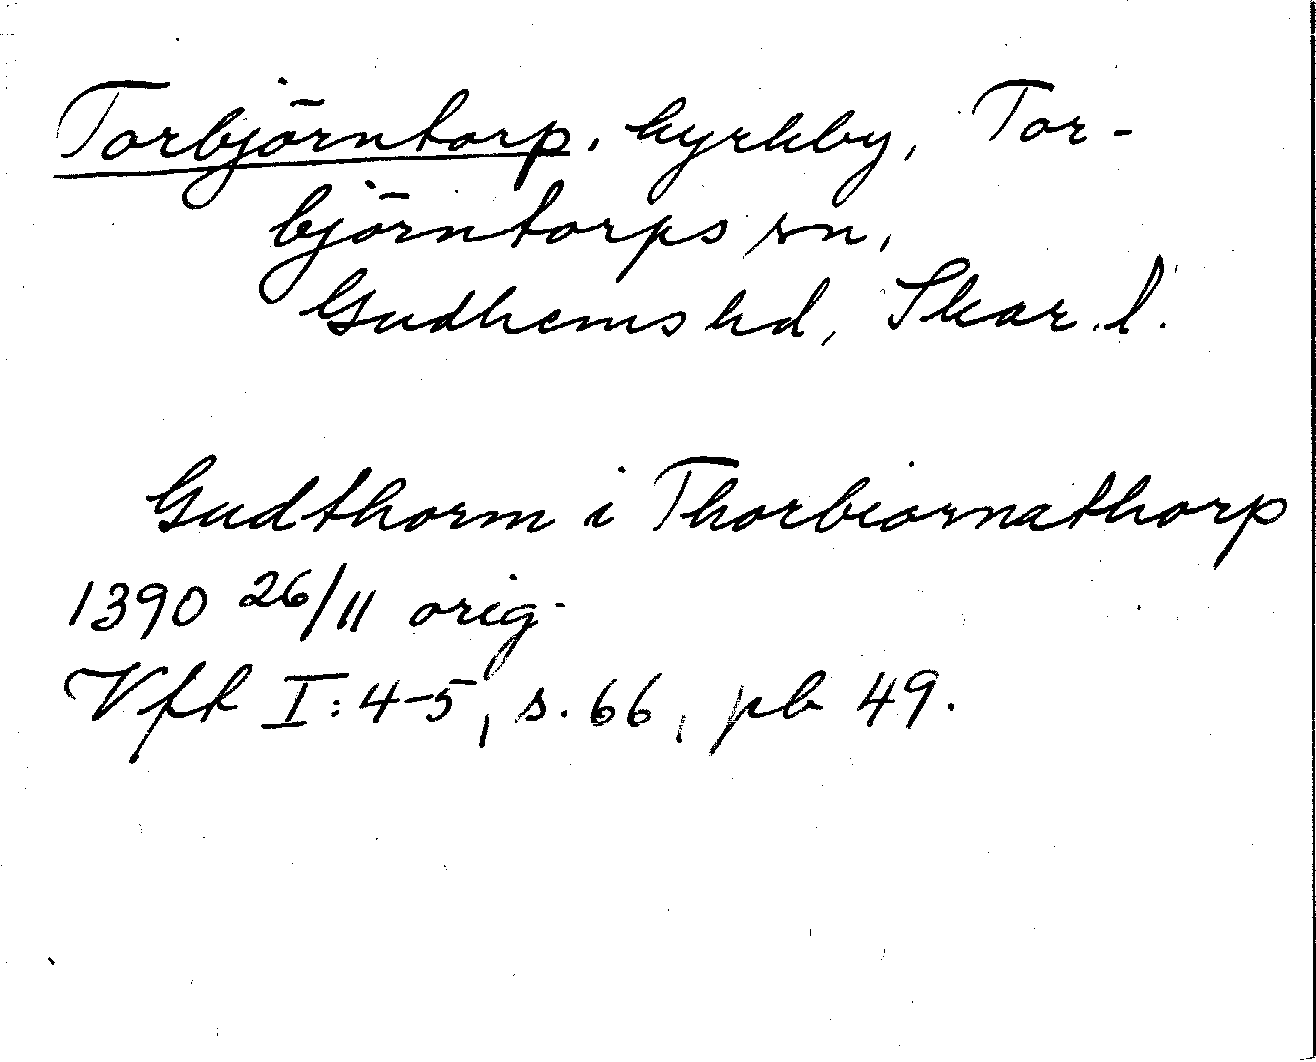 Torbjörntorp, kyrkby, Tor-
björntorps sn,
Gudhems hd, Skar. l.
Gudthorm i Thorbiornathorp
1390 26/11 orig.
Vft I: 4-5, s. 66, pb 49.